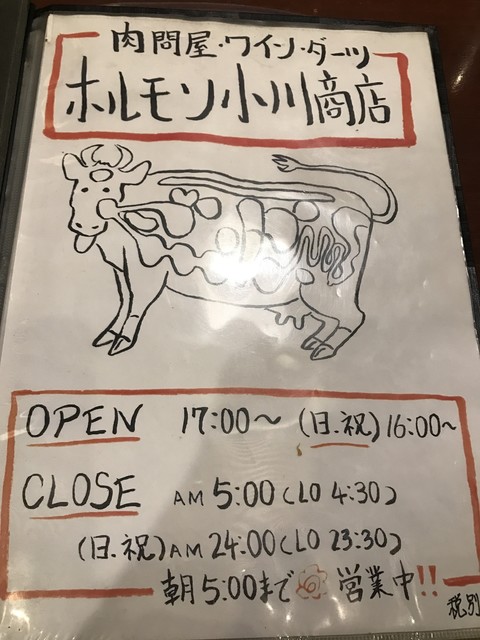 肉問屋・ワイン・ダーツ
ホルモン小川商店
OPEN 17:00～ (日.祝) 16:00～
CLOSE AM 5:00 (LO 4:30)
(日.祝) AM 24:00 (LO 23:30)
朝5:00まで 営業中!!
税別